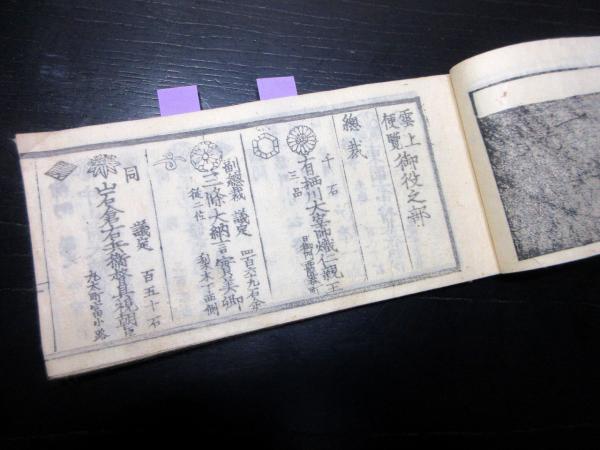 雲上
便覧
御役之部
總裁
千石
三品
有栖川大宰帥熾仁親王
副總裁 議定
四百六九石余
従二位
三條大納言實美卿
同 議定
百五十石
岩倉右兵衛督具視朝臣
丸太町富小路